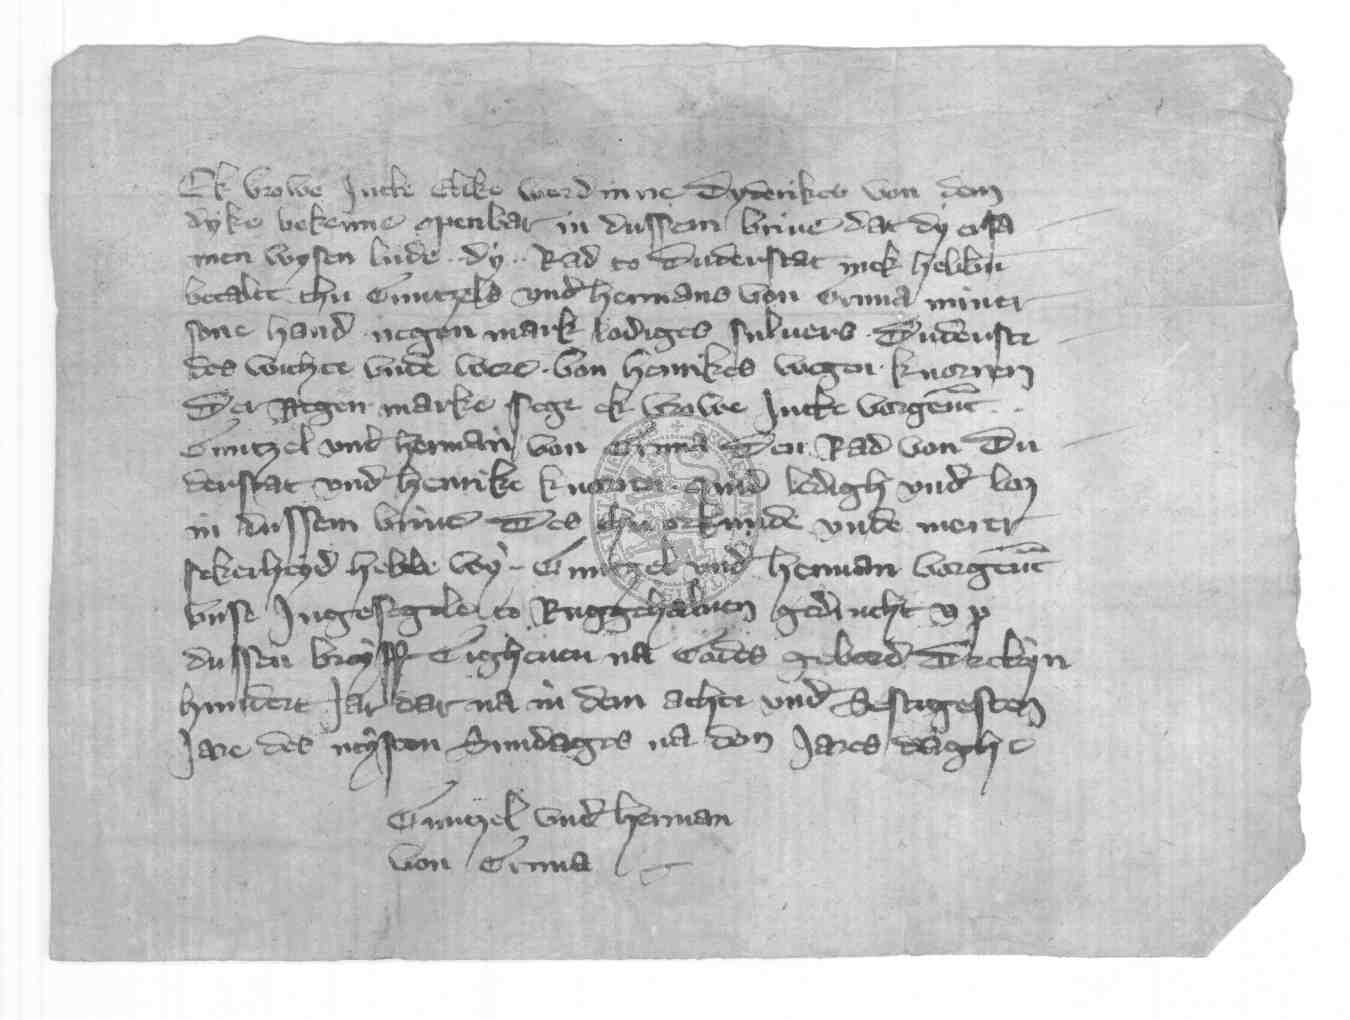 Ek vrowe Jutte Elike werdinne Dyderikes von dem
dyke bekenne openbar in dussem brive dat dy ersa
men wysen lude ·· dy ·· Rad to Duderstat mek hebbin
betalt thu Cuntzels vnd hermans von Gruna miner
sone hand negen mark lodiges suluers · Duderste
des wichte vnde were · von henrikes wegen · knorren
Der Negen marke sege ek vrowe Jutte vorgent
Cuntzel vnd herman von Gruna Den Rad von Du
derstat vnd henrike knorren quid ledigh vnd los
in dussem brive Des thu orkunde vnde merer
sekerheyd hebbe wy · Cuntzel vnd herman vorgent
vnse Ingesegele to Ruggehaluen gedrucht vp
dussen breyff Gegheuen na Godes gebord Dretteyn
hundert Jar dar na in dem achte vnd Sestigesten
Jare des neysten Sundages na dem Jares daghe
Cuntzel vnd herman
von Gruna